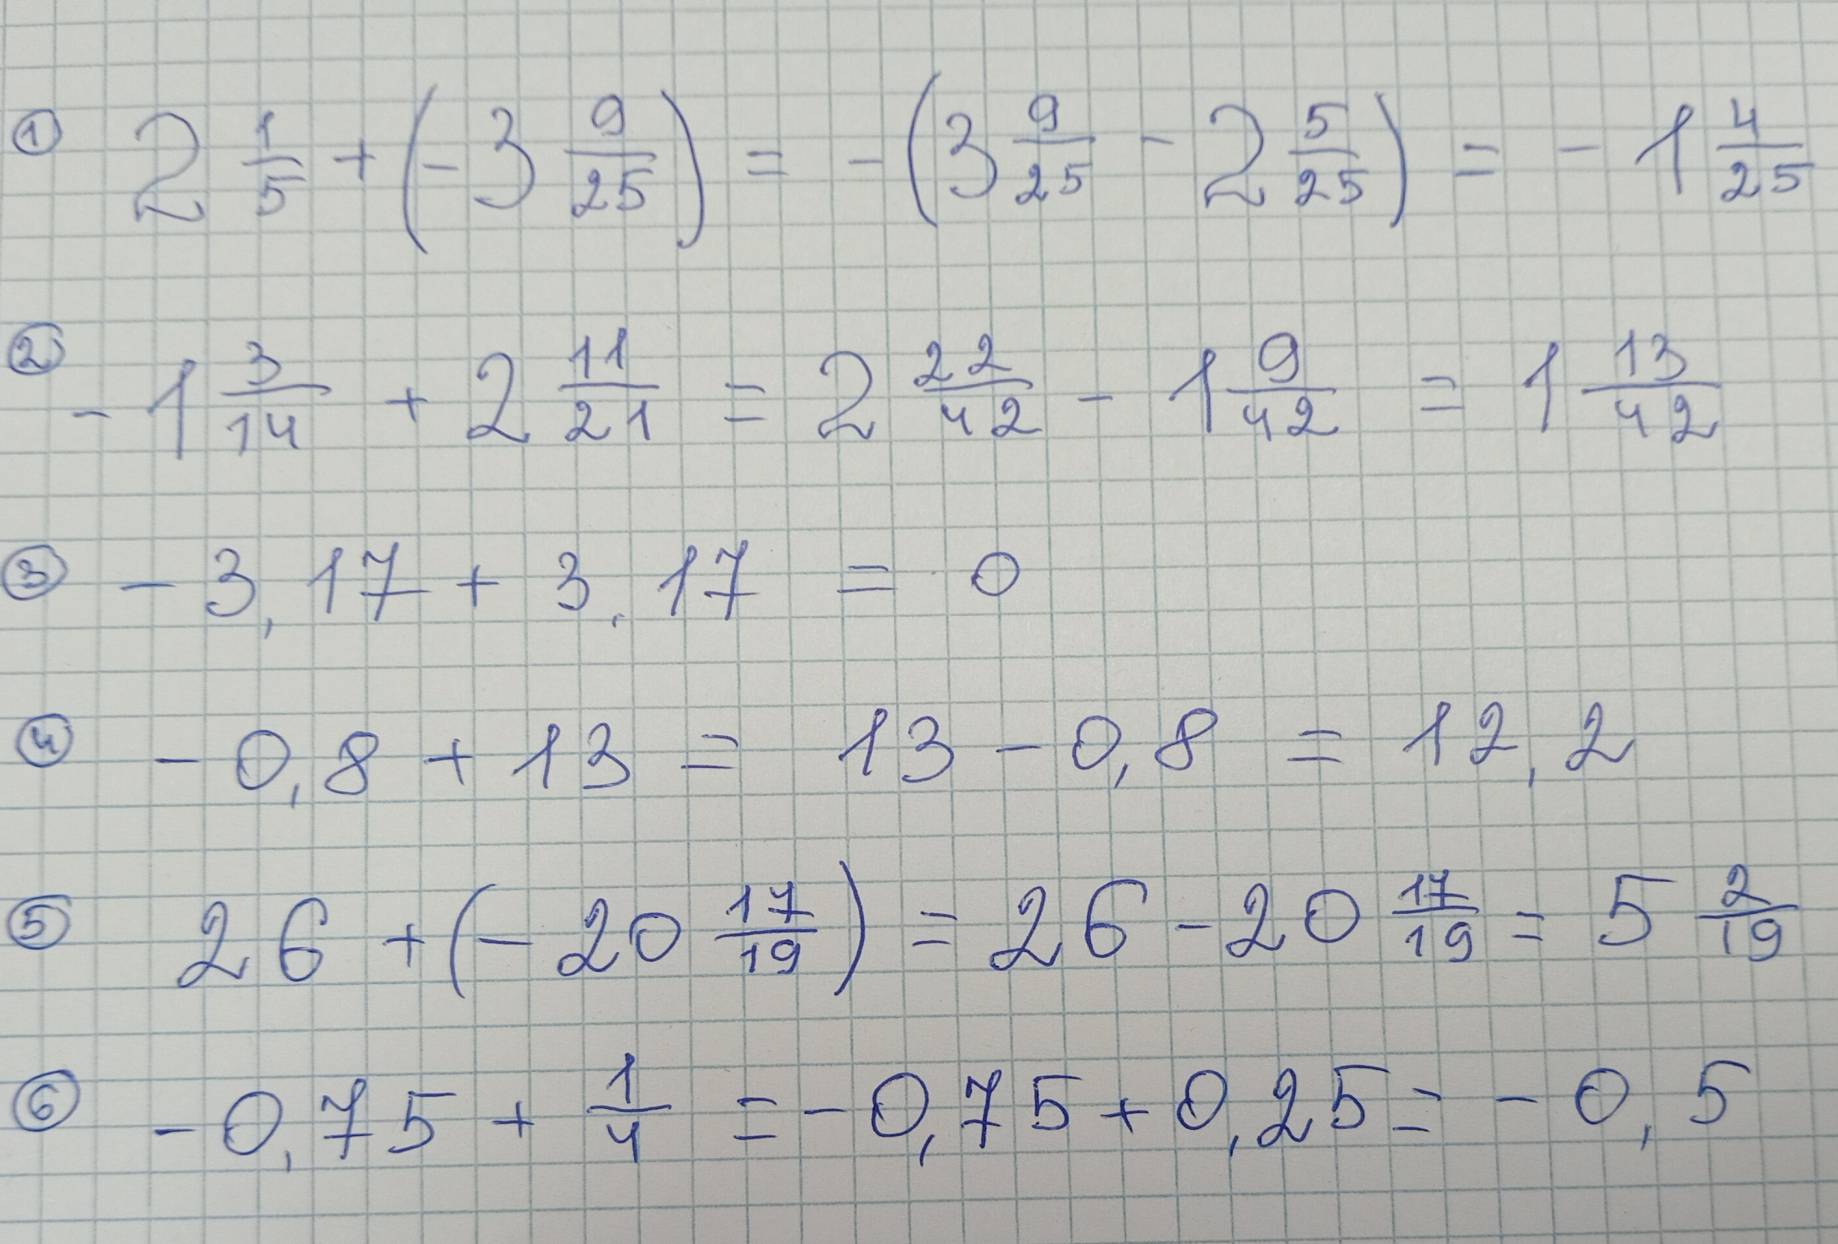 ① 2 1/5 + (-3 9/25) = -(3 9/25 - 2 5/25) = -1 4/25
② -1 3/14 + 2 11/21 = 2 22/42 - 1 9/42 = 1 13/42
③ -3,17 + 3,17 = 0
④ -0,8 + 13 = 13 - 0,8 = 12,2
⑤ 26 + (-20 17/19) = 26 - 20 17/19 = 5 2/19
⑥ -0,75 + 1/4 = -0,75 + 0,25 = -0,5